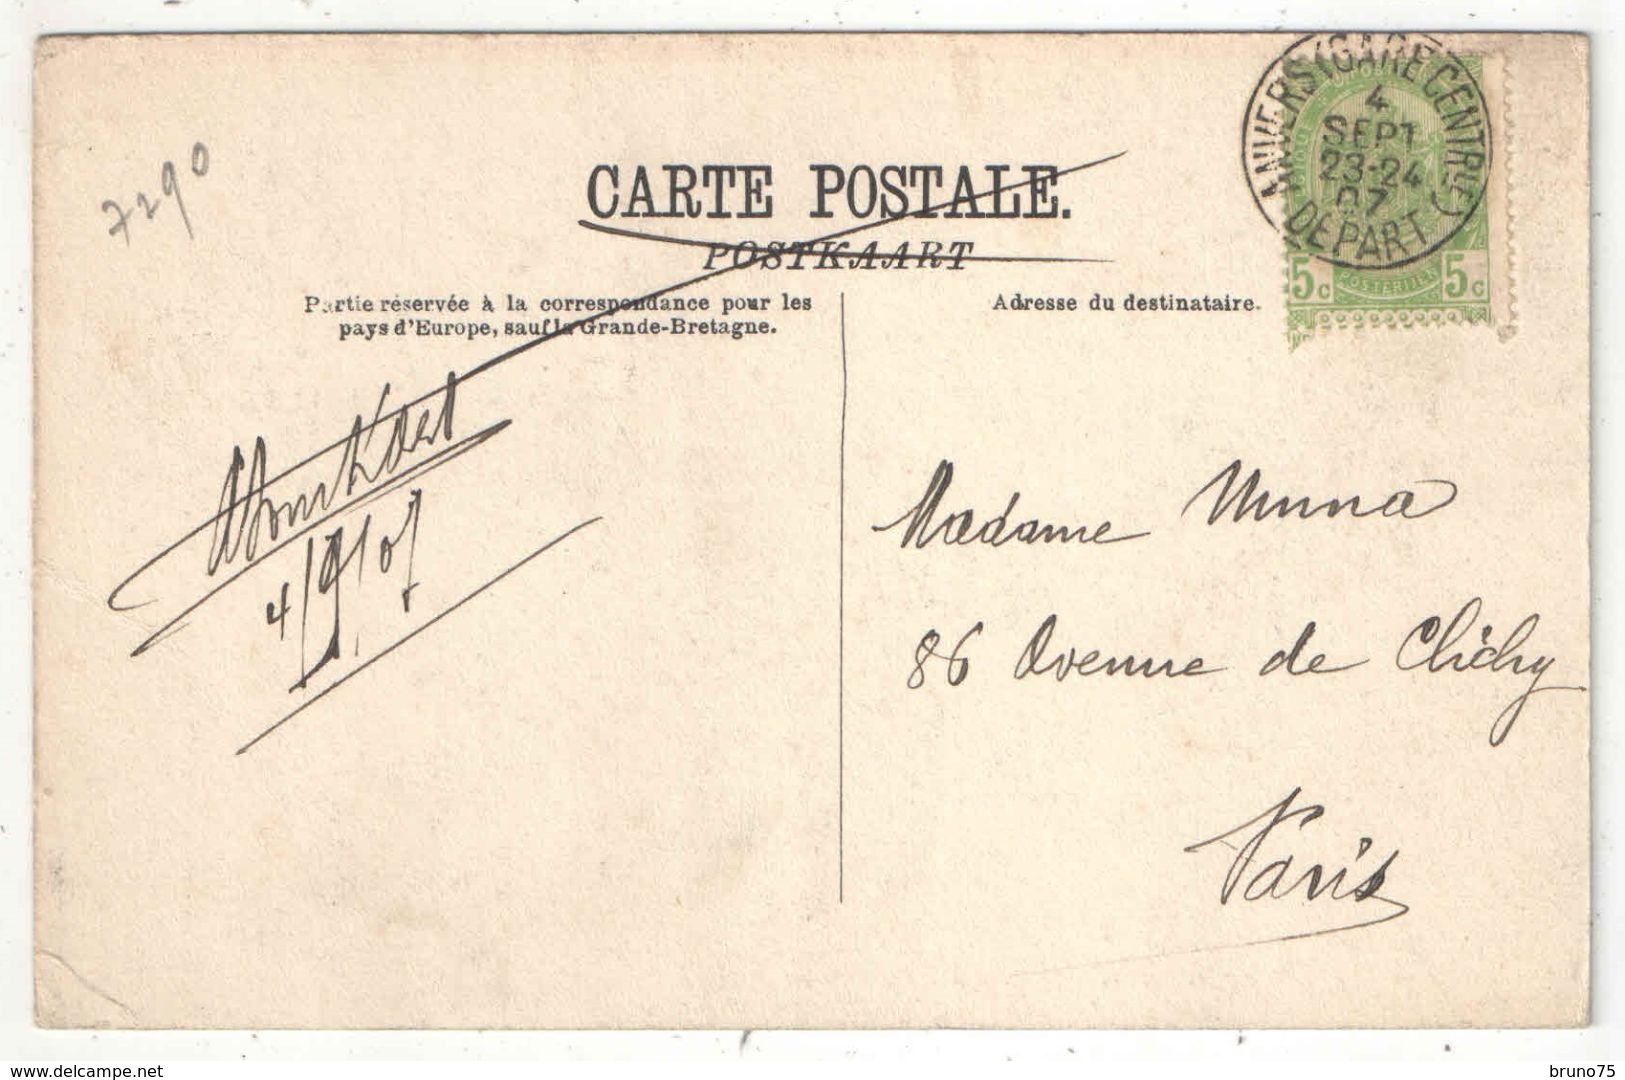 ANVERS (GARE CENTRALE)
4
SEPT
23-24
07
DEPART
5c POSTERIJEN 5c
7290
CARTE POSTALE.
POSTKAART
Partie réservée à la correspondance pour les
pays d'Europe, sauf la Grande-Bretagne.
Adresse du destinataire.
4/9/07
Madame
86 Avenue de Clichy
Paris
delcampe.net
bruno75